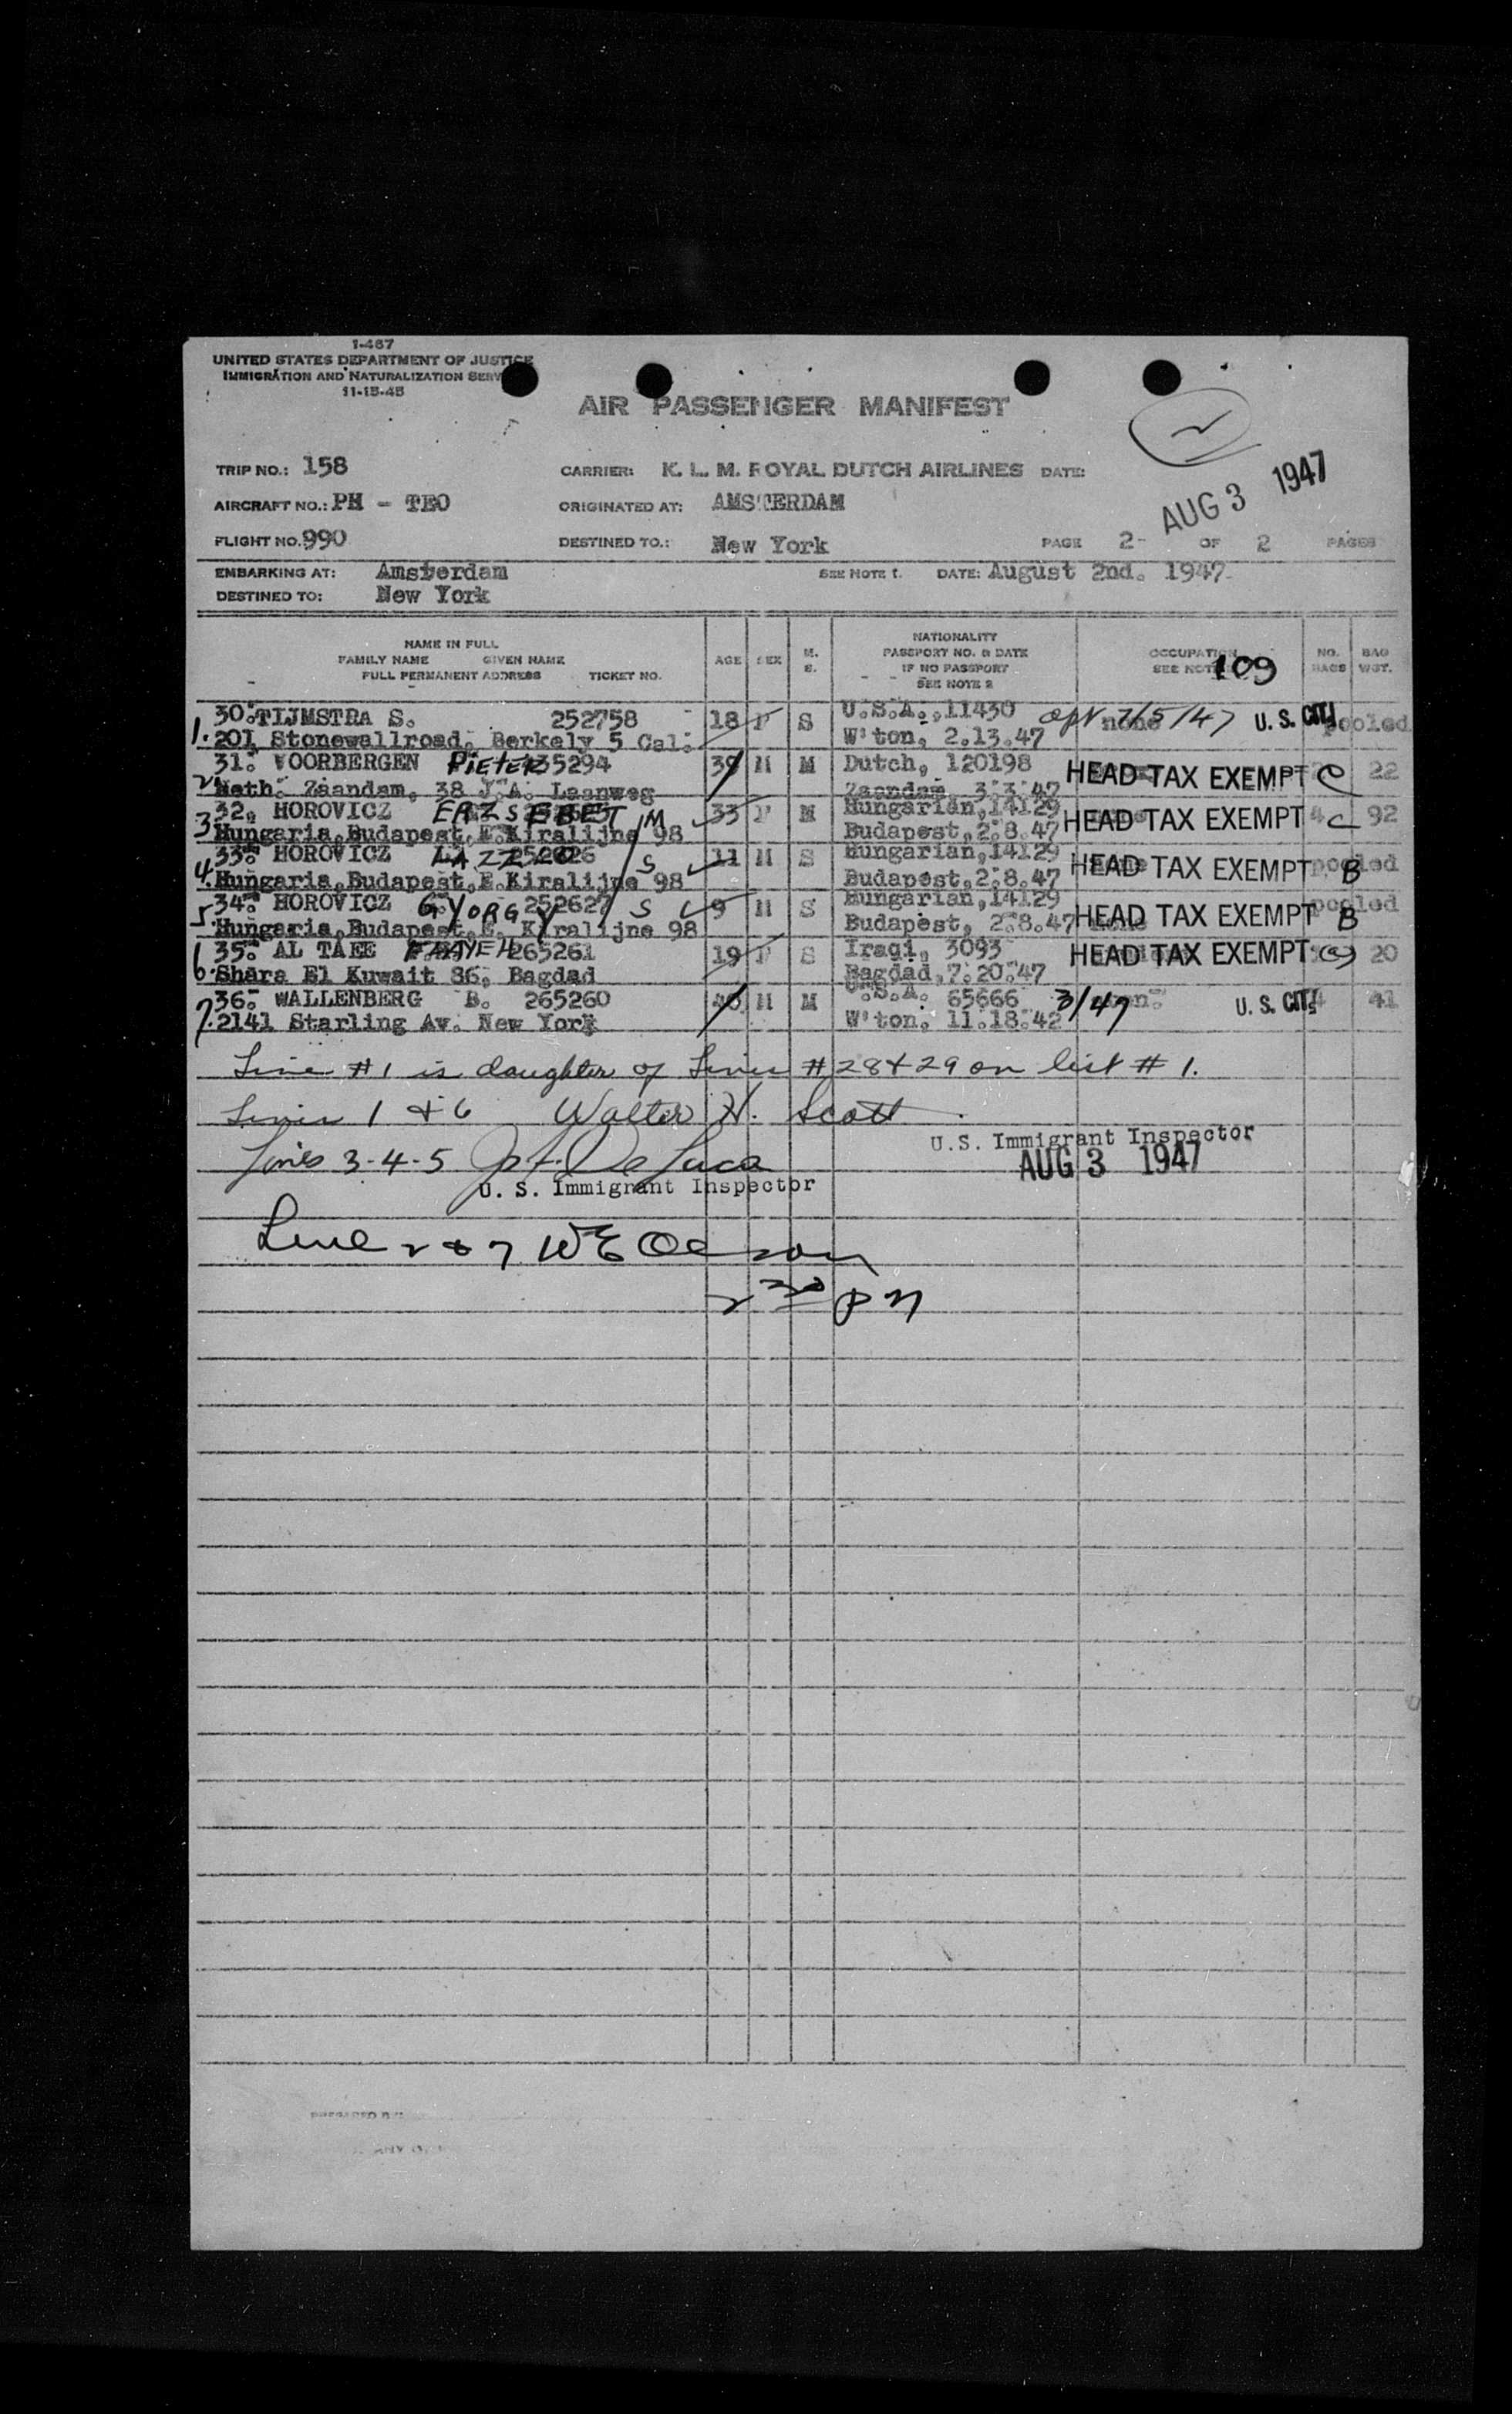 1-467
UNITED STATES DEPARTMENT OF JUSTICE
IMMIGRATION AND NATURALIZATION SERV
11-15-45
AIR PASSENGER MANIFEST
2
TRIP NO.: 158 CARRIER: K. L. M. ROYAL DUTCH AIRLINES DATE: AUG 3 1947
AIRCRAFT NO.: PH - TEO ORIGINATED AT: AMSTERDAM
FLIGHT NO. 990 DESTINED TO.: New York PAGE 2- OF 2 PAGES
EMBARKING AT: Amsterdam SEE NOTE 1. DATE: August 2nd. 1947.
DESTINED TO: New York
NAME IN FULL
FAMILY NAME GIVEN NAME
FULL PERMANENT ADDRESS TICKET NO.
AGE SEX M. S.
NATIONALITY
PASSPORT NO. & DATE
IF NO PASSPORT
SEE NOTE 2
OCCUPATION
SEE NOTE 109
NO. BAGS BAG WGT.
30. TIJMSTRA S. 252758 18 F S U.S.A., 11430 none 7/5/47 U. S. CIT. pooled
1. 201, Stonewallroad, Berkely 5 Cal. W'ton, 2.13.47
31. VOORBERGEN PIETER 35294 39 M M Dutch, 120198 HEAD TAX EXEMPT C 22
2 Neth. Zaandam, 38 J.A. Laanweg Zaandam, 3.3.47
32. HOROVICZ ERZSEBET M 33 F M Hungarian, 14129 HEAD TAX EXEMPT 4 C 92
3 Hungaria, Budapest, E. Kiralijne 98 Budapest, 2.8.47
33. HOROVICZ S 11 M S Hungarian, 14129 HEAD TAX EXEMPT pooled B
4. Hungaria, Budapest, E. Kiralijne 98 Budapest, 2.8.47
34. HOROVICZ GYORGY 252627 S 9 M S Hungarian, 14129 HEAD TAX EXEMPT pooled B
5 Hungaria, Budapest, E. Kiralijne 98 Budapest, 2.8.47
35. AL TAEE 265261 19 F S Iraqi, 3093 HEAD TAX EXEMPT 20
6. Shara El Kuwait 86, Bagdad Bagdad, 7.20.47
36. WALLENBERG B. 265260 M M U.S.A. 65666 3/47 U. S. CIT. 41
7. 2141 Starling Av. New York W'ton, 11.18.42
Line #1 is daughter of Lines #28 & 29 on list #1.
Lines 1 & 6 Walter H. Scott
U.S. Immigrant Inspector
AUG 3 1947
Lines 3-4-5 De Luca
U. S. Immigrant Inspector
Line 2 & 7 WE Olson
2 30 PM